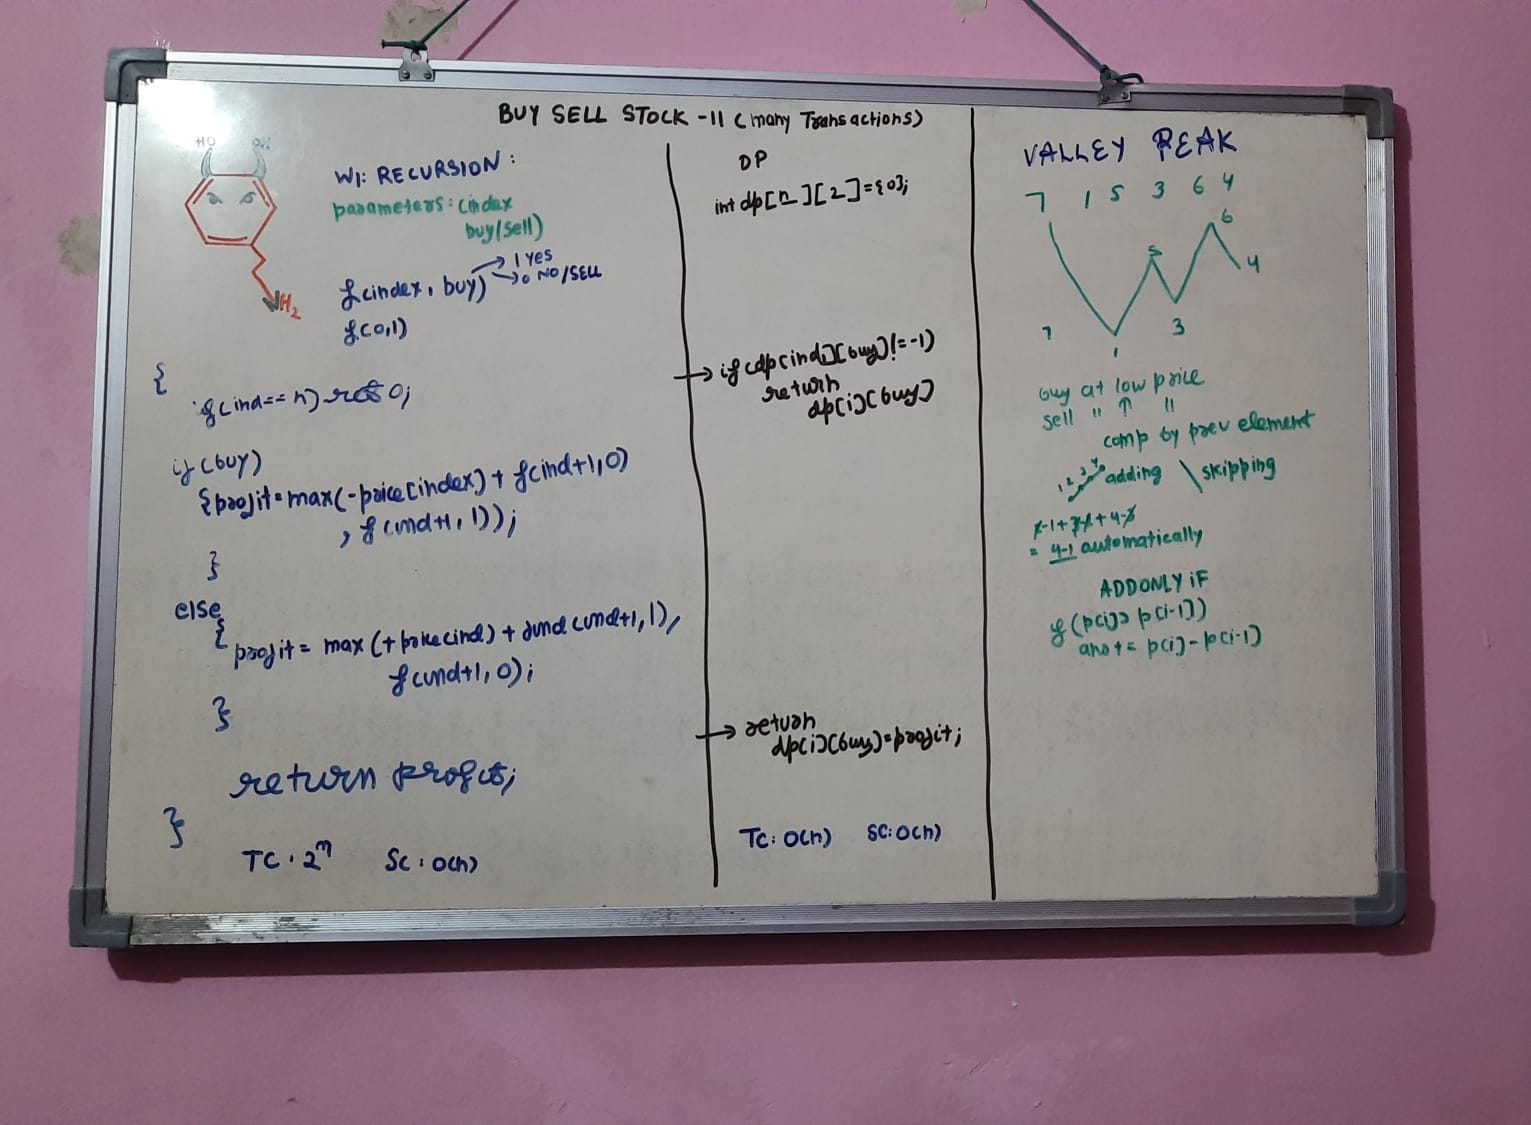 BUY SELL STOCK -II (many Transactions)
HO
OH
NH2
W1: RECURSION:
parameters: (index
buy/sell)
f(index, buy) → 1 Yes
→ 0 NO/SELL
f(0,1)
{
if(ind==n) ret 0;
if (buy)
{profit=max(-price[index)+ f(ind+1,0)
, f(ind+1, 1));
}
else
{
profit= max (+price(ind)+ (ind+1,1),
f(ind+1, 0);
}
return profit;
}
TC: 2^n SC: O(n)
DP
int dp[n][2]={0};
→ if (dp[ind][buy]!=-1)
return
dp[i][buy]
→ return
dp[i][buy]=profit;
TC: O(n) SC: O(n)
VALLEY PEAK
7 1 5 3 6 4
6
5
4
7
3
1
buy at low price
sell " ↑ "
comp by prev element
1 2 3 4 adding \ skipping
2-1+3-2+4-3
= 4-1 automatically
ADD ONLY iF
if (p[i]> p[i-1])
ans+= p[i]-p[i-1]